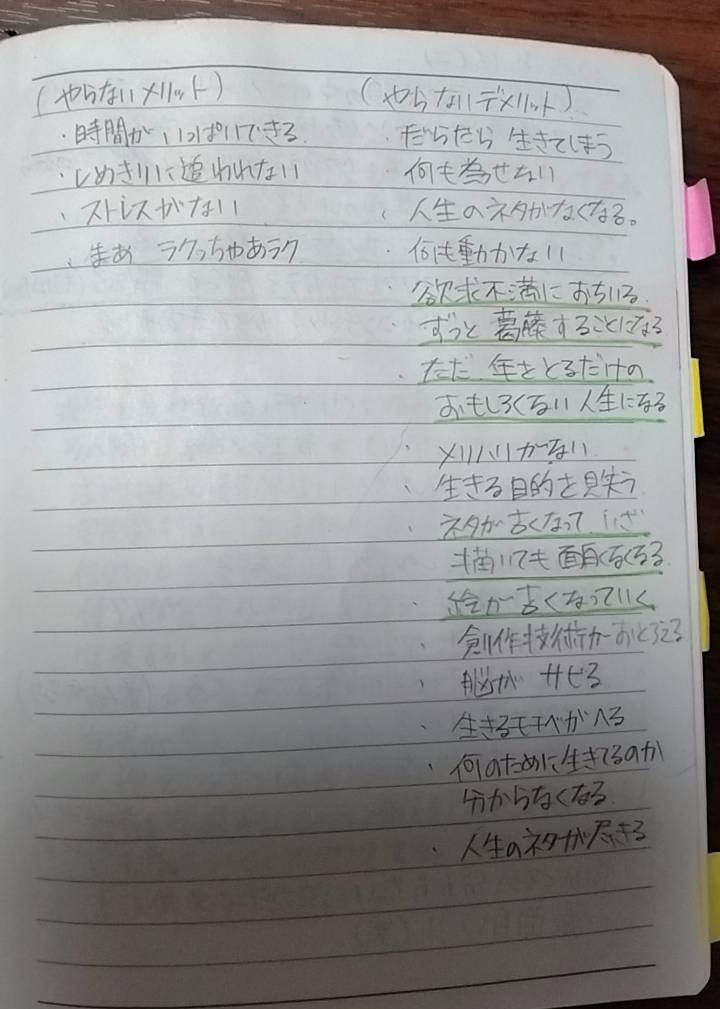 (やらないメリット)
・時間がいっぱいできる
・しめきりに追われない
・ストレスがない
・まあ ラクっちゃあラク
(やらないデメリット)
・だらだら 生きてしまう
・何も為せない
・人生のネタがなくなる。
・何も動かない
・欲求不満におちいる
・ずっと 葛藤することになる
・ただ 年をとるだけの
おもしろくない人生になる
・メリハリがない
・生きる目的を見失う
・ネタが古くなって いざ
描いても面白くなくなる
・絵が古くなっていく
・創作技術がおとろえる
・脳が サビる
・生きるモチベがへる
・何のために生きてるのか
分からなくなる
・人生のネタが尽きる